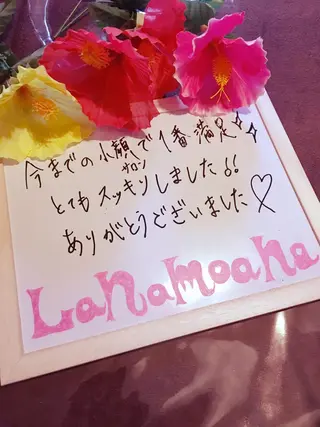 今までの小顔で1番満足✨
サロン
とてもスッキリしました!!
ありがとうございました♡
LaNamoana